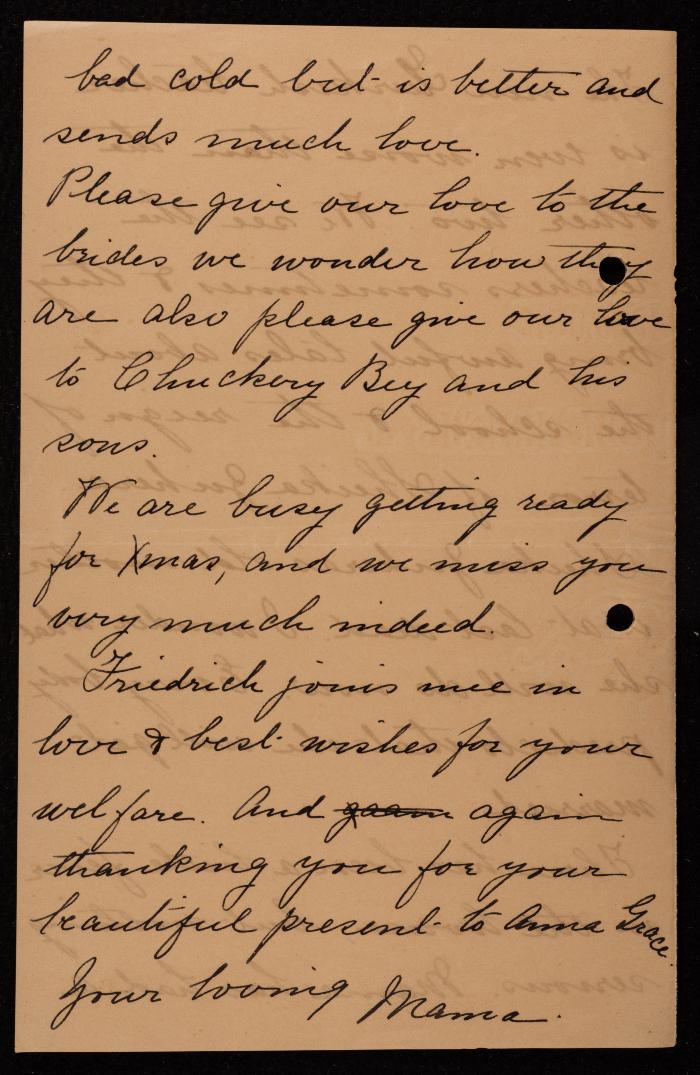 bad cold but is better and
sends much love.
Please give our love to the
brides we wonder how they
are also please give our love
to Chuckery Bey and his
sons.
We are busy getting ready
for Xmas, and we miss you
very much indeed.
Friedrich joins mee in
love & best wishes for your
welfare. And gaam again
thanking you for your
beautiful present to Anna Grace.
Your loving Mama.